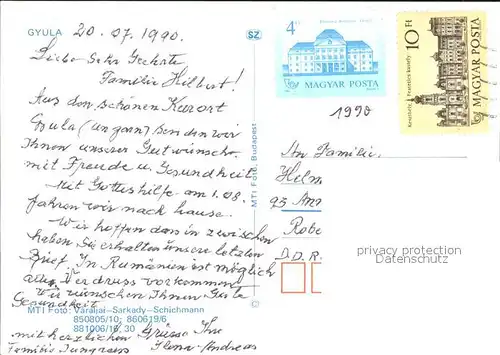 GYULA 20.07.1990.
SZ
Liebe Sehr Geehrte
Familie Hilbert!
Aus den schönen Kurort
Gyula (ungarn) senden wir
Ihnen unserer Gutwünsche
mit Freude u. Gesundheit.
Mit Gotteshilfe am 1.08.
fahren wir nach hause.
Wir hoffen das in zwischen
haben Sie erhalten unsere letzten
Brief. In Rumänien ist möglich
alles Verdruss vorkommen
Wir wünschen Ihnen Gute
Gesundheit
MTI Foto: Váraljai–Sarkady–Schichmann
850805/10; 860619/6
881006/16, 30
mit herzlichen Grüsse Ihre
Familie Ilona-Andreas
MTI Foto, Budapest
4 Ft
MAGYAR POSTA
10 Ft
Keszthely, Festetics kastély
MAGYAR POSTA
1990
An Familie
Helm
95
Robe
D.D.R.
privacy protection
Datenschutz